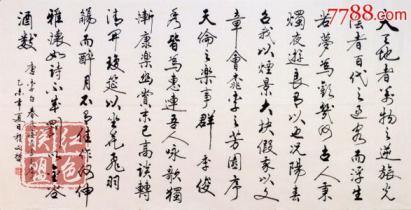 7788.com
夫天地者萬物之逆旅光
陰者百代之過客而浮生
若夢為歡幾何古人秉
燭夜遊良有以也況陽春
召我以煙景大塊假我以文
章會桃花之芳園序
天倫之樂事群季俊
秀皆為惠連吾人詠歌獨
慚康樂幽賞未已高談轉
清開瓊筵以坐花飛羽
觴而醉月不有佳作何伸
雅懷如詩不成罰依金谷
酒數
唐李白春
乙未年夏日
红色
联盟